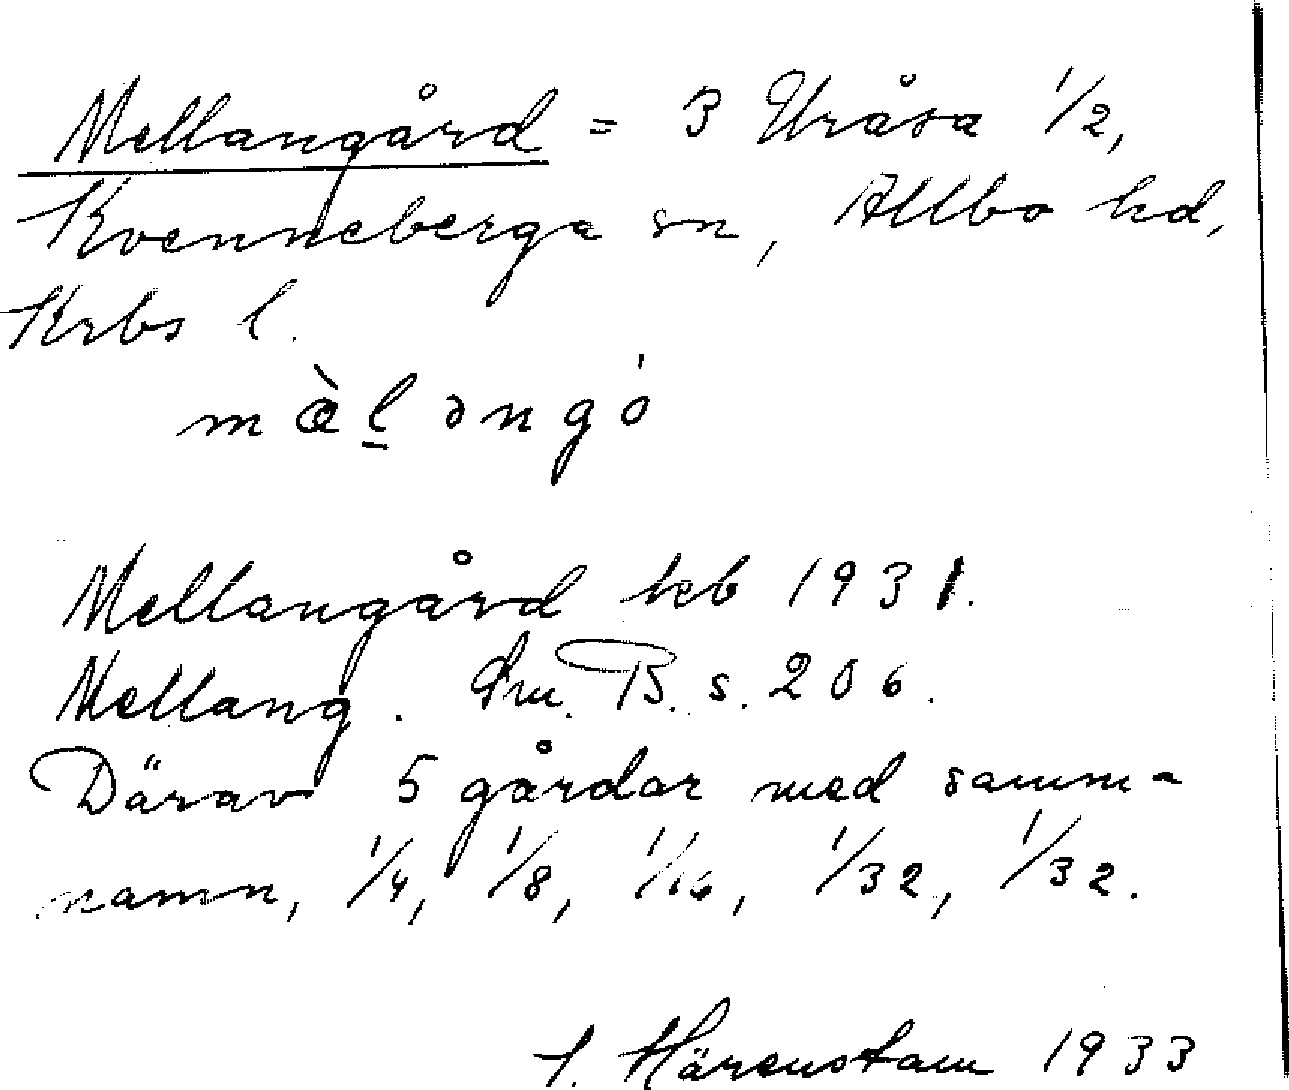 Mellangård = 3 Uråsa 1/2,
Kvenneberga sn, Allbo hd,
Krbs l.
mæ̀l̲əngó
Mellangård heb 1931.
Mellang. Öru. B. s. 206.
Därav 5 gårdar med samm-
namn, 1/4, 1/8, 1/16, 1/32, 1/32.
Härenstam 1933